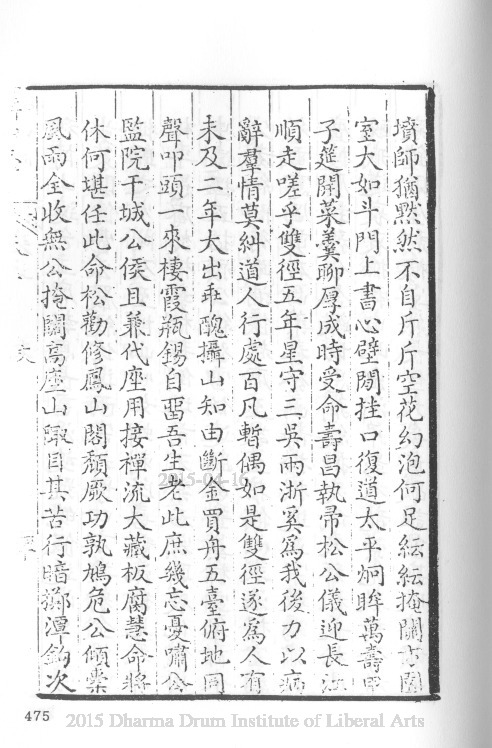 墳師猶黙然不自斤斤空花幻泡何足紜紜掩關古園
室大如斗門上書心壁間挂口復道太平炯眸萬壽
子筵開菜羹聊厚成時受命壽昌執帚松公儀迎長江
順走嗟乎雙徑五年星守三吳兩浙奚爲我後力以病
辭羣情莫糾道人行處百凡暫偶如是雙徑遂爲人有
未及二年大出乖醜攝山知由斷金買舟五臺俯地同
聲叩頭一來棲霞瓶錫自畱吾生老此庶幾忘憂嘯公
監院干城公侯且兼代座用接禪流大藏板腐慧命將
休何堪任此命松勸修鳳山閣頹厥功孰鳩危公傾橐
風雨全收無公掩關高座山陬目其苦行暗擲潭鈎次
475
2015-04-16
2015 Dharma Drum Institute of Liberal Arts